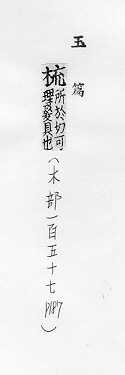 玉篇
梳所於切可
理髮具也
(木部一百五十七 P187)